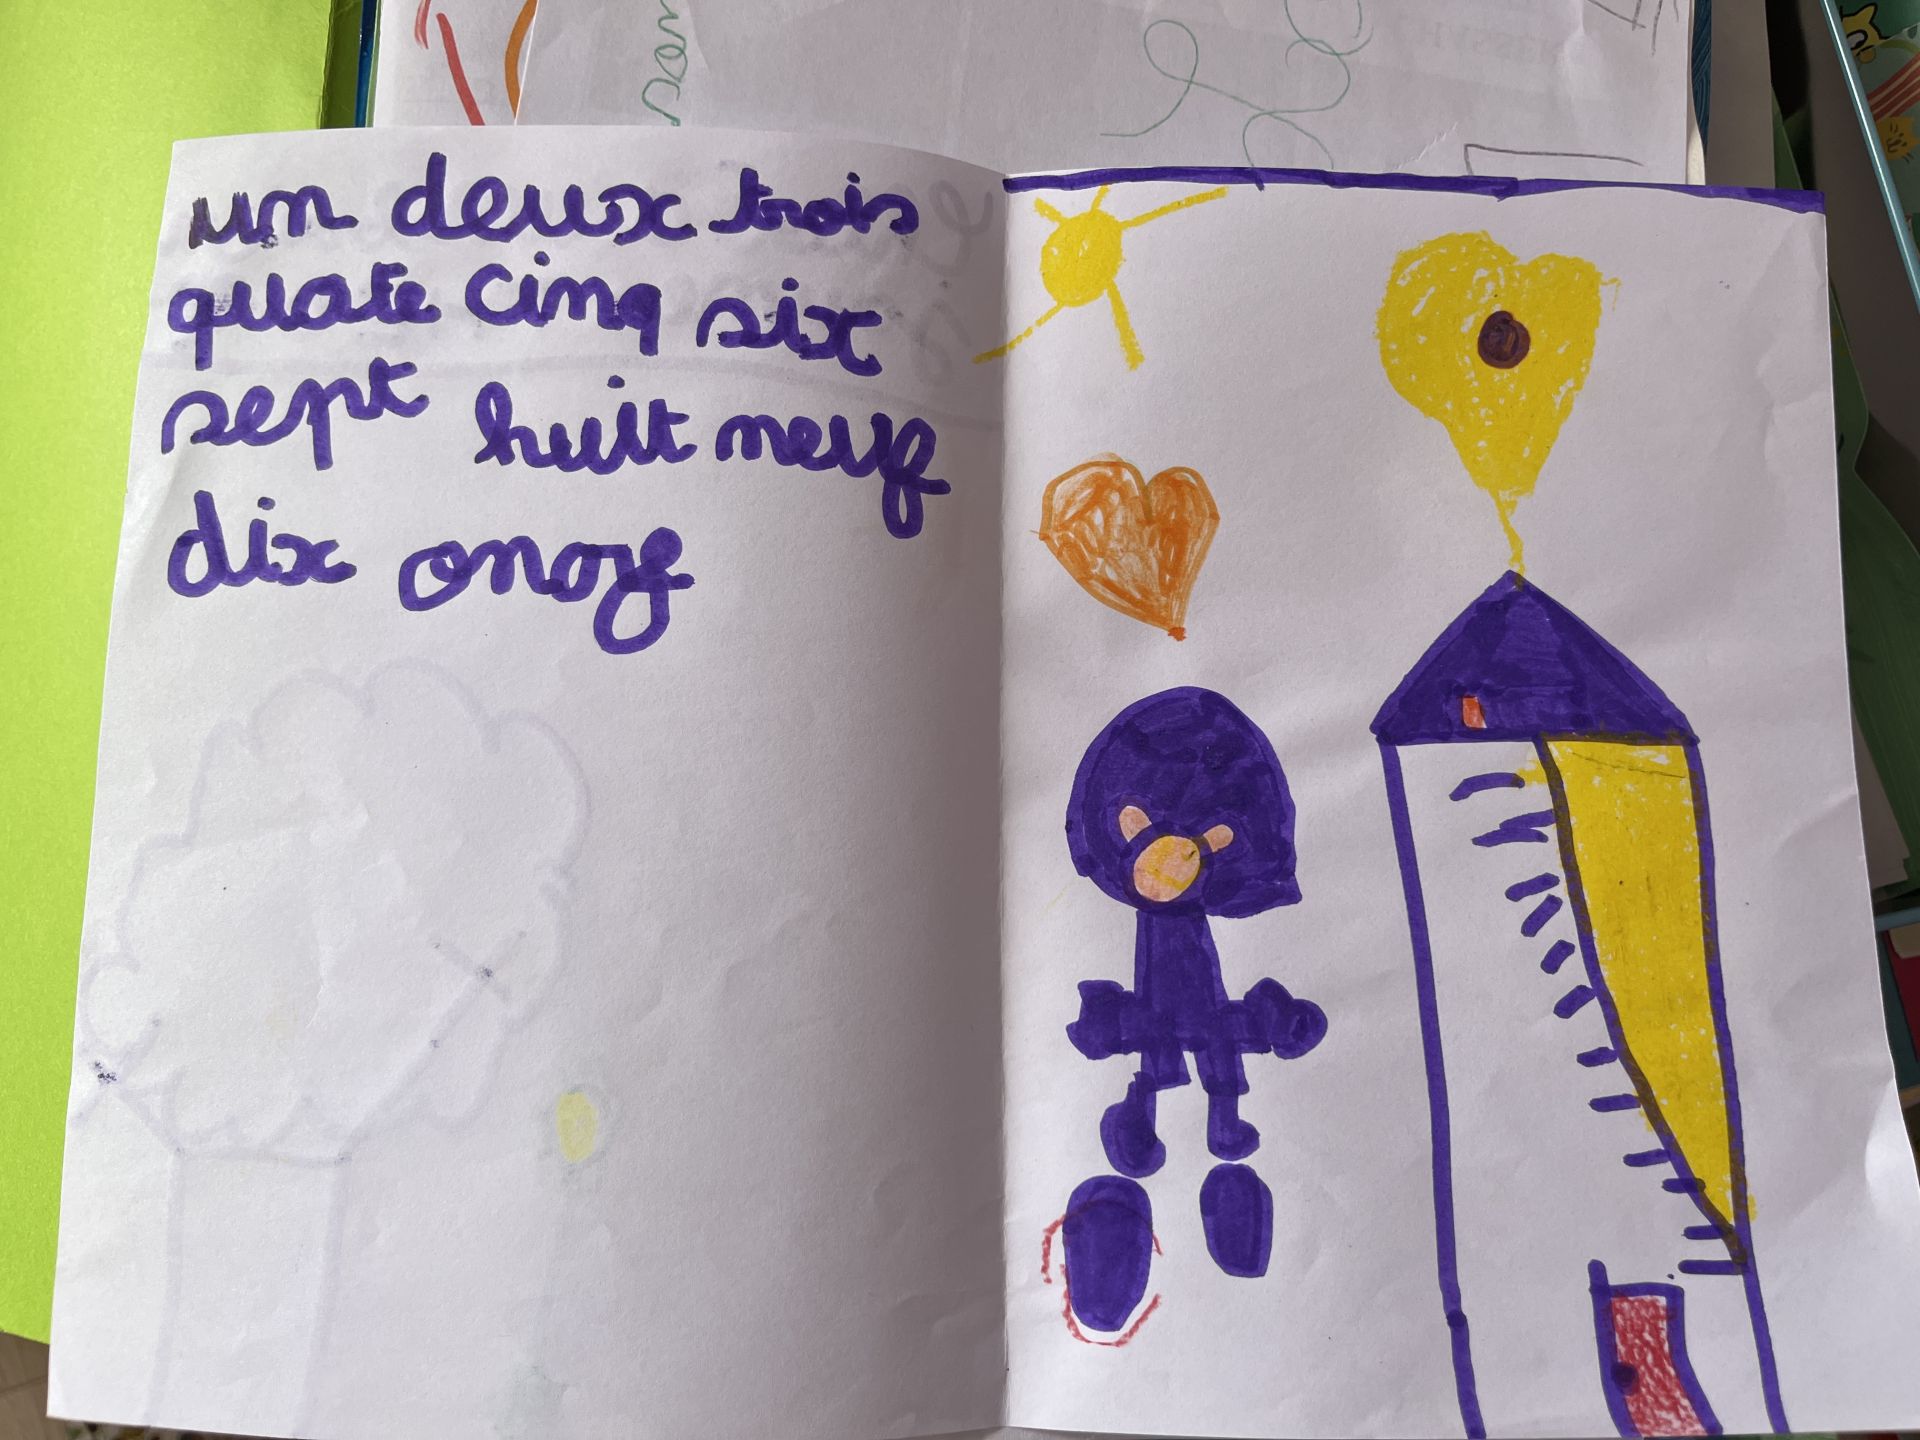 un deux trois
quate cinq six
sept huit neuf
dix onze